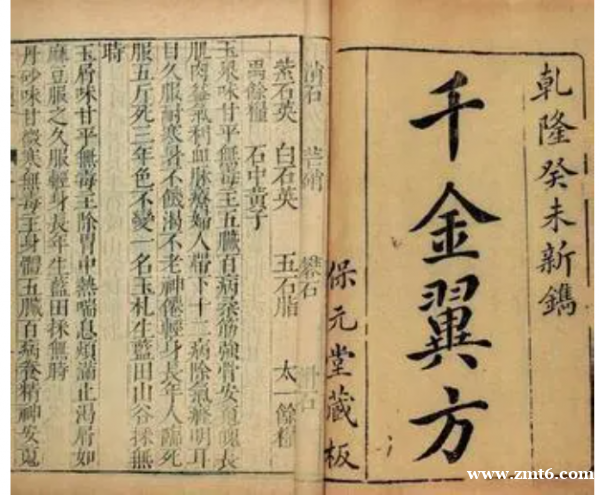 乾隆癸未新鐫
千金翼方
保元堂藏板
消石 芒硝 礬石 滑石
紫石英 白石英 五石脂 太一餘糧
禹餘糧 石中黃子
玉泉味甘平無毒主五臟百病柔筋強骨安魂魄長
肌肉益氣利血脉療婦人帶下十二病除氣癃明耳
目久服耐寒暑不饑渴不老神僊輕身長年人臨死
服五斤死三年色不變一名玉札生藍田山谷採無
時
玉屑味甘平無毒主除胃中熱喘息煩滿止渴屑如
麻豆服之久服輕身長年生藍田採無時
丹砂味甘微寒無毒主身體五臟百病養精神安魂
www.zmt6.com